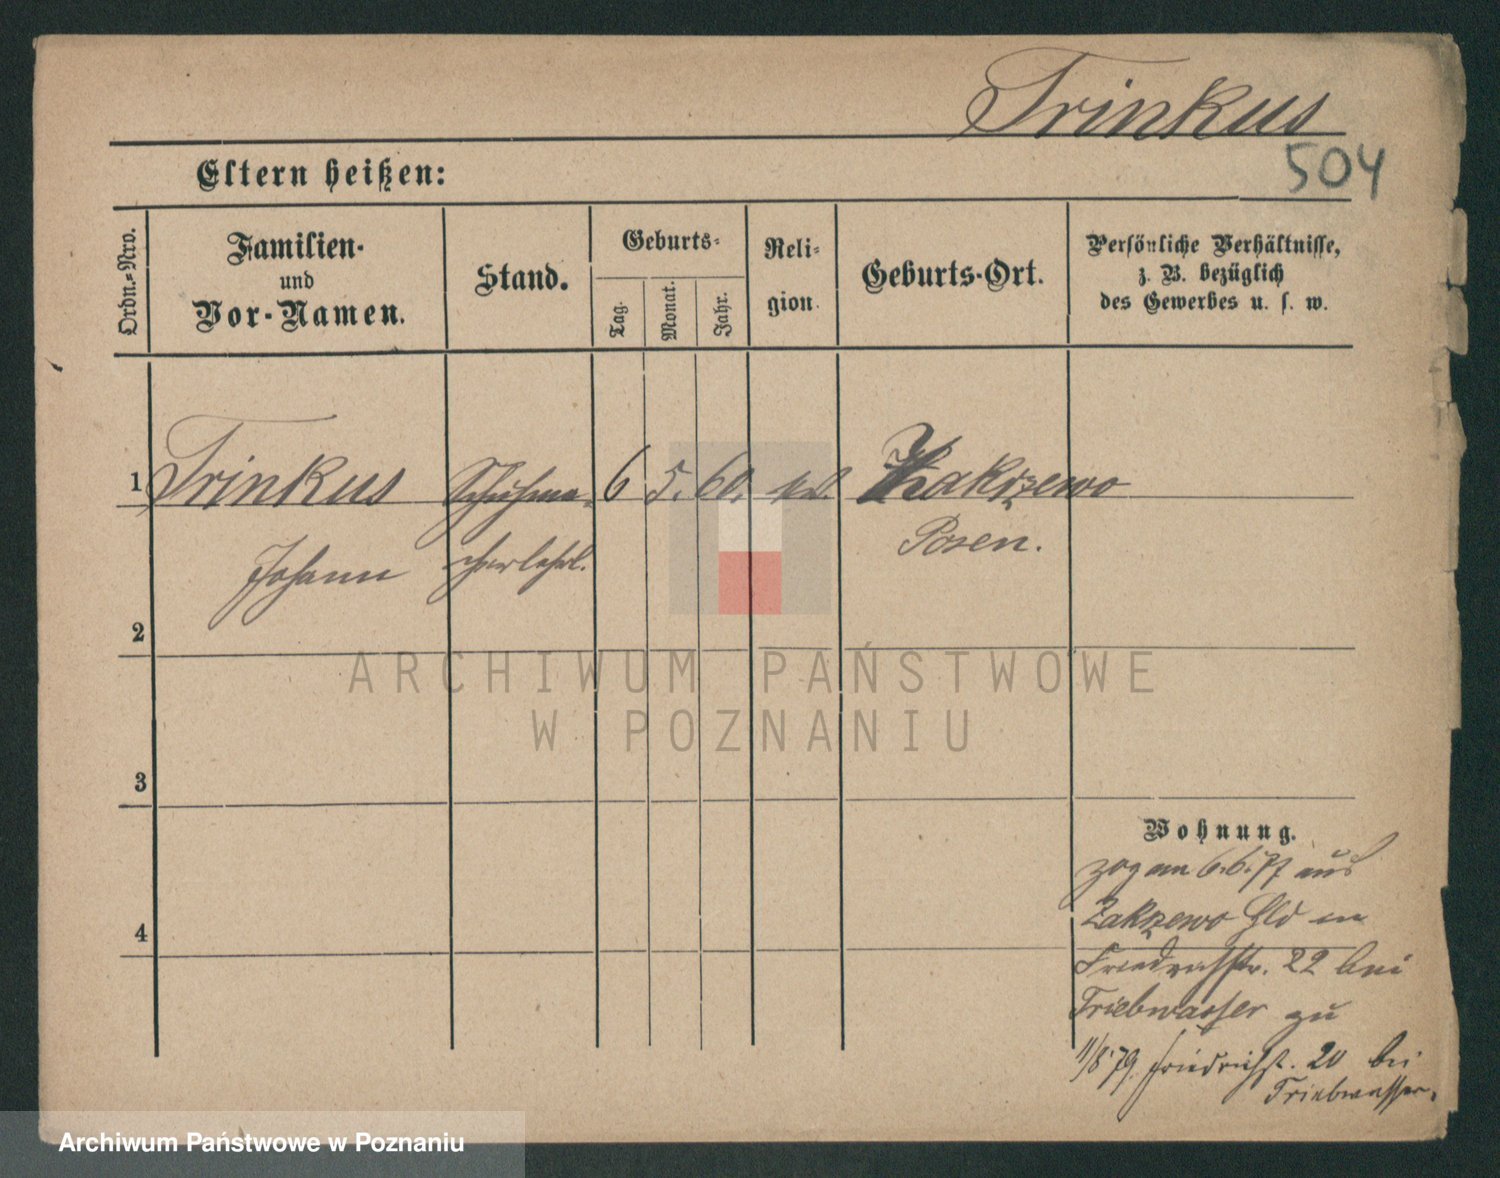 Trinkus
504
Eltern heißen:
Ordn.-Nro.
Familien-
und
Vor-Namen.
Stand.
Geburts-
Tag.
Monat.
Jahr.
Reli-
gion.
Geburts-Ort.
Persönliche Verhältnisse,
z. B. bezüglich
des Gewerbes u. s. w.
1 Trinkus Schuhma- 6 5. 60. Zakrzewo
Johann cherlehrl. Posen.
2
3
4
ARCHIWUM PAŃSTWOWE
W POZNANIU
Wohnung.
zog am 6.6.77 aus
Zakrzewo
Friedrichstr. 22 bei
Triebwasser zu
11/8.79. Friedrichst. 20 bei
Triebwasser.
Archiwum Państwowe w Poznaniu